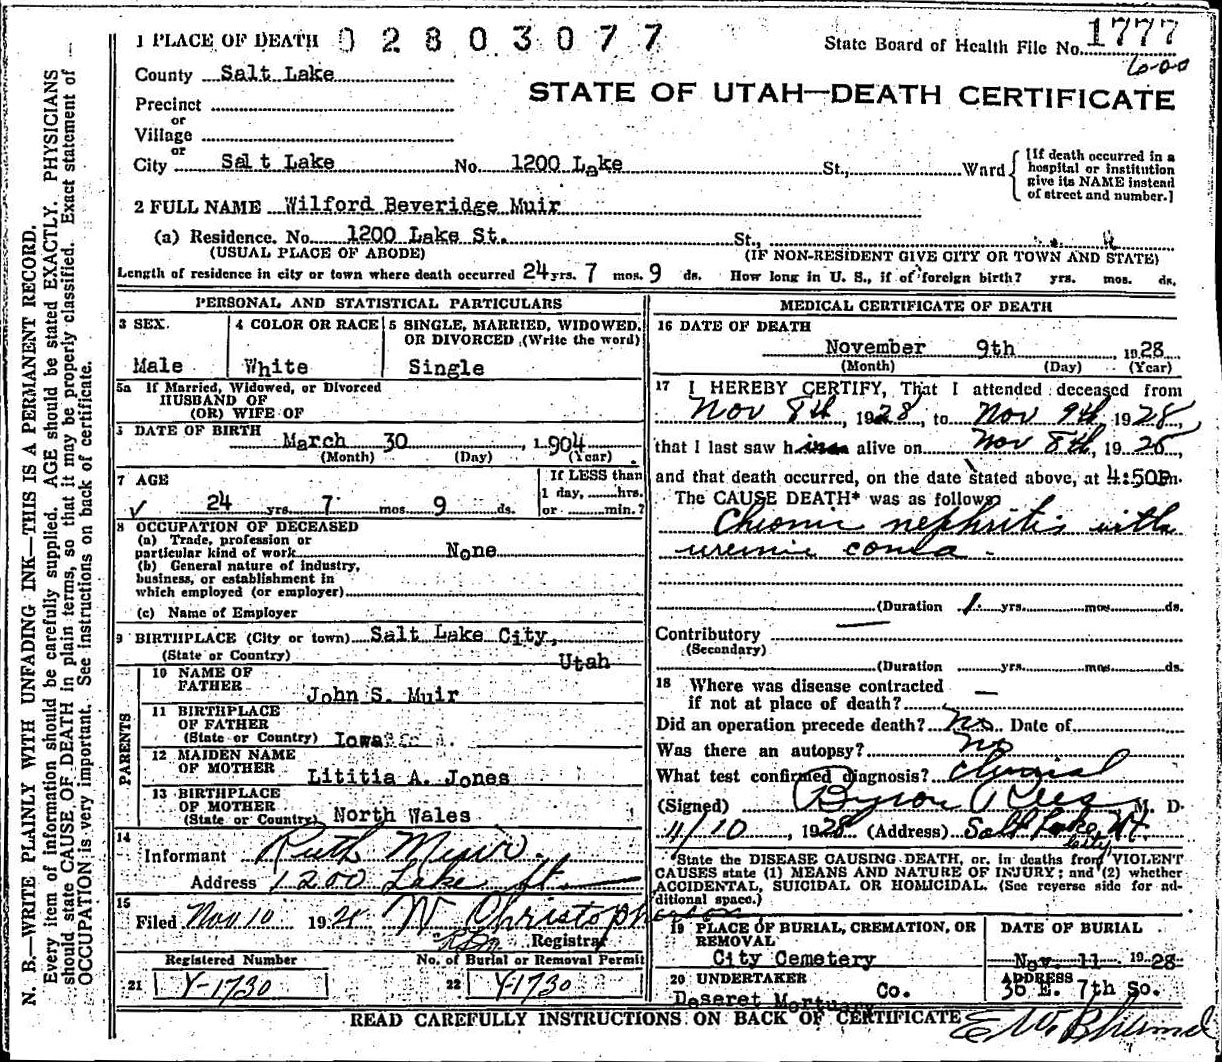 1 PLACE OF DEATH 02803077
State Board of Health File No. 1777
600
County Salt Lake
STATE OF UTAH—DEATH CERTIFICATE
Precinct
or
Village
or
City Salt Lake No. 1200 Lake St., Ward {[If death occurred in a hospital or institution give its NAME instead of street and number.]
2 FULL NAME Wilford Beveridge Muir
(a) Residence. No. 1200 Lake St. St.,
(USUAL PLACE OF ABODE) (IF NON-RESIDENT GIVE CITY OR TOWN AND STATE)
Length of residence in city or town where death occurred 24 yrs. 7 mos. 9 ds. How long in U. S., if of foreign birth? yrs. mos. ds.
PERSONAL AND STATISTICAL PARTICULARS
3 SEX. 4 COLOR OR RACE 5 SINGLE, MARRIED, WIDOWED,
OR DIVORCED (Write the word)
Male White Single
5a If Married, Widowed, or Divorced
HUSBAND OF
(OR) WIFE OF
DATE OF BIRTH
March 30, 1904
(Month) (Day) (Year)
7 AGE If LESS than
1 day, hrs.
24 yrs. 7 mos. 9 ds. or min.?
8 OCCUPATION OF DECEASED
(a) Trade, profession or
particular kind of work None
(b) General nature of industry,
business, or establishment in
which employed (or employer)
(c) Name of Employer
9 BIRTHPLACE (City or town) Salt Lake City,
(State or Country) Utah
PARENTS
10 NAME OF
FATHER John S. Muir
11 BIRTHPLACE
OF FATHER
(State or Country) Iowa
12 MAIDEN NAME
OF MOTHER Lititia A. Jones
13 BIRTHPLACE
OF MOTHER
(State or Country) North Wales
14
Informant Ruth Muir.
Address 1200 Lake St.
15
Filed Nov 10 1928 W Christopherson
Registrar
Registered Number No. of Burial or Removal Permit
21 Y-1730 22 Y-1730
MEDICAL CERTIFICATE OF DEATH
16 DATE OF DEATH
November 9th, 1928
(Month) (Day) (Year)
17 I HEREBY CERTIFY, That I attended deceased from
Nov 8th, 1928, to Nov 9th, 1928,
that I last saw him alive on Nov 8th, 1928,
and that death occurred, on the date stated above, at 4:50P m.
The CAUSE DEATH* was as follows
Chronic nephritis with
uremic coma.
(Duration 1 yrs. mos. ds.
Contributory
(Secondary)
(Duration yrs. mos. ds.
18 Where was disease contracted
if not at place of death? —
Did an operation precede death? No. Date of
Was there an autopsy? No
What test confirmed diagnosis? Clinical
(Signed) Byron Rees M. D.
11/10, 1928 (Address) Salt Lake City, Ut.
*State the DISEASE CAUSING DEATH, or, in deaths from VIOLENT
CAUSES state (1) MEANS AND NATURE OF INJURY; and (2) whether
ACCIDENTAL, SUICIDAL OR HOMICIDAL. (See reverse side for ad-
ditional space.)
19 PLACE OF BURIAL, CREMATION, OR
REMOVAL
City Cemetery
DATE OF BURIAL
Nov. 11 1928
20 UNDERTAKER
Deseret Mortuary Co.
ADDRESS
36 E. 7th So.
READ CAREFULLY INSTRUCTIONS ON BACK OF CERTIFICATE
N. B.—WRITE PLAINLY WITH UNFADING INK—THIS IS A PERMANENT RECORD.
Every item of information should be carefully supplied. AGE should be stated EXACTLY. PHYSICIANS
should state CAUSE OF DEATH in plain terms, so that it may be properly classified. Exact statement of
OCCUPATION is very important. See instructions on back of certificate.